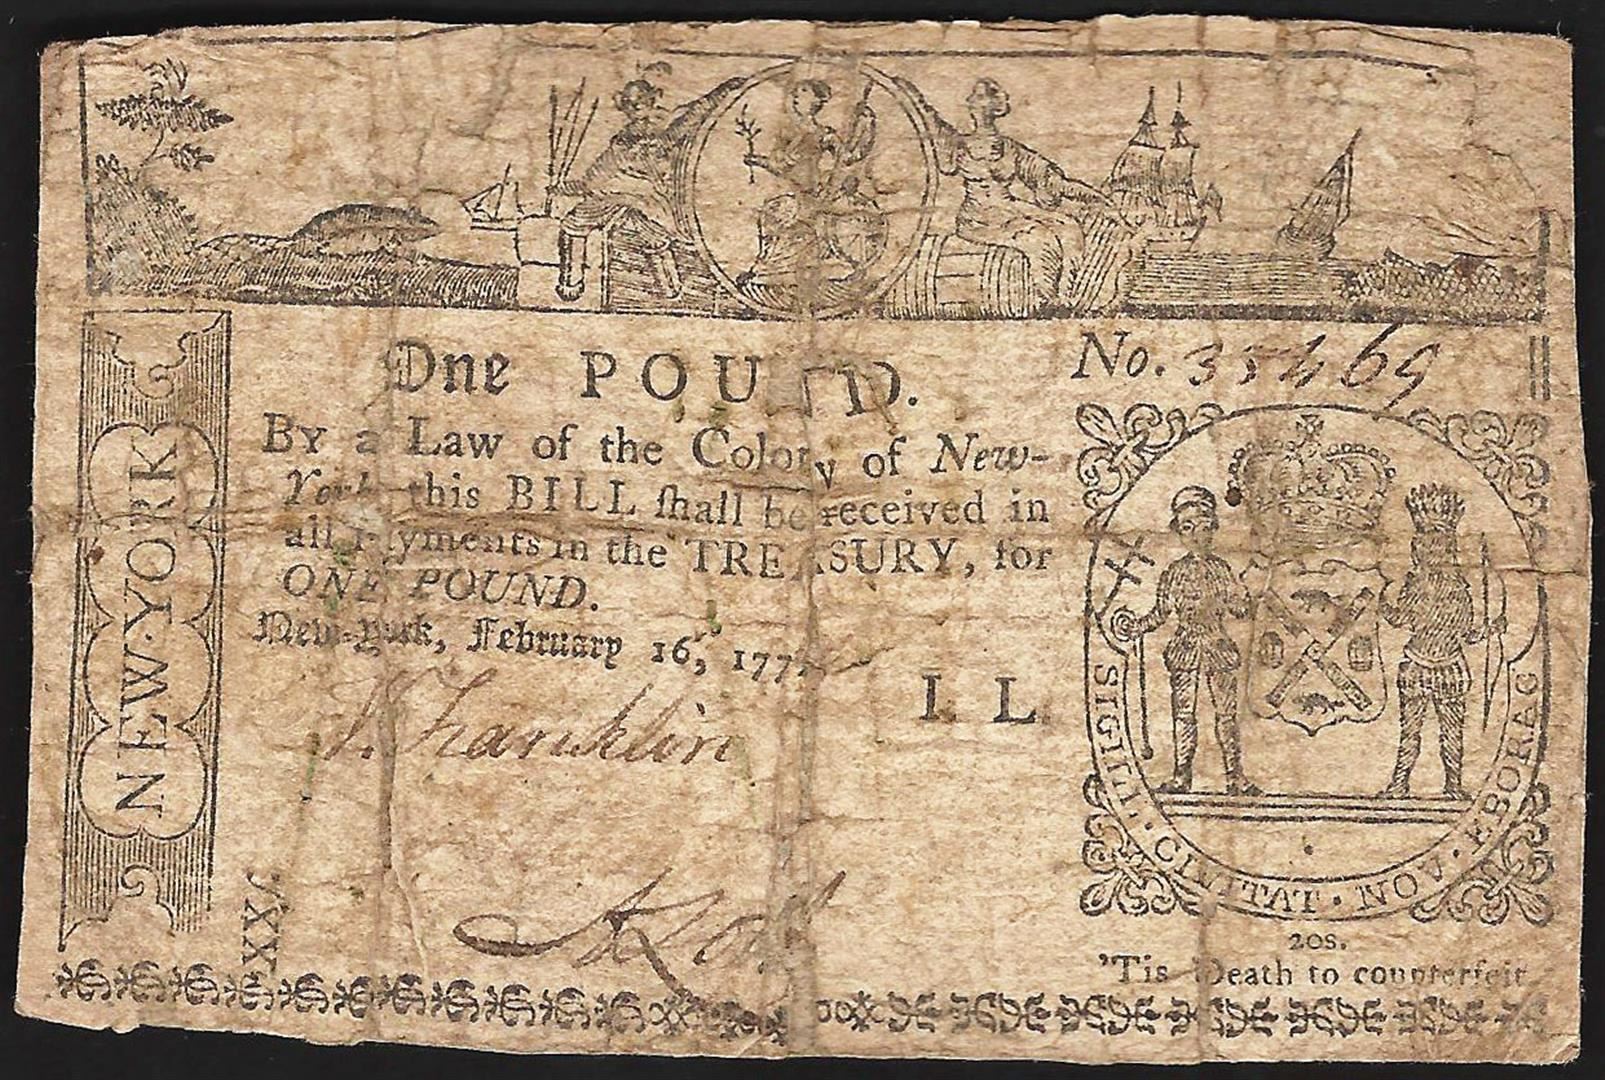 One POUND.
No. 35469
By a Law of the Colony of New-
York this BILL ſhall be received in
all Payments in the TREASURY, for
ONE POUND.
New-York, February 16, 177
J. Franklin
I L
NEW·YORK
XXX
SIGILL·CIVITAT·NOV·EBORAC
20s.
'Tis Death to counterfeit